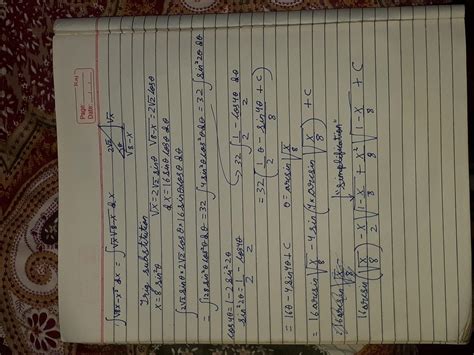 Page:
Date:
∫√(8x-x²) dx = ∫√x √(8-x) dx
2√2 √x
θ
√(8-x)
Trig substitution
x = 8 sin²θ √x = 2√2 sinθ √(8-x) = 2√2 cosθ
dx = 16 sinθ cosθ dθ
∫ 2√2 sinθ * 2√2 cosθ * 16 sinθ cosθ dθ
= ∫ 128 sin²θ cos²θ dθ = 32 ∫ 4 sin²θ cos²θ dθ = 32 ∫ sin²2θ dθ
cos4θ = 1 - 2 sin²2θ
sin²2θ = 1/2 - cos4θ/2
32 ∫ 1/2 - cos4θ/2 dθ
= 32 (1/2 θ - sin4θ/8 + C)
= 16θ - 4 sin4θ + C θ = arcsin √(x/8)
= 16 arcsin √(x/8) - 4 sin(4 * arcsin √(x/8)) + C
"simplification"
16 arcsin(√(x/8)) - x √(1-x/8) + x²/2 √(1-x/8) + C